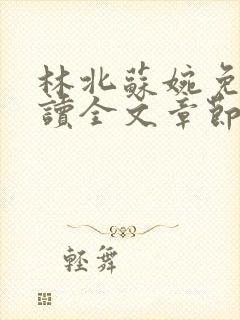 林北蘇婉免
讀全文章節
輕舞